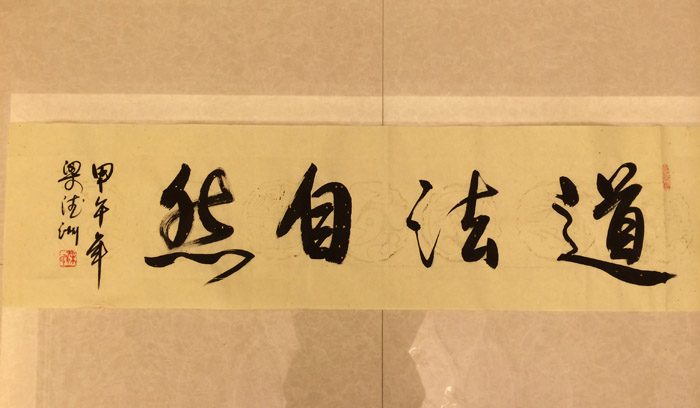 道法自然
甲午年
梁德洲